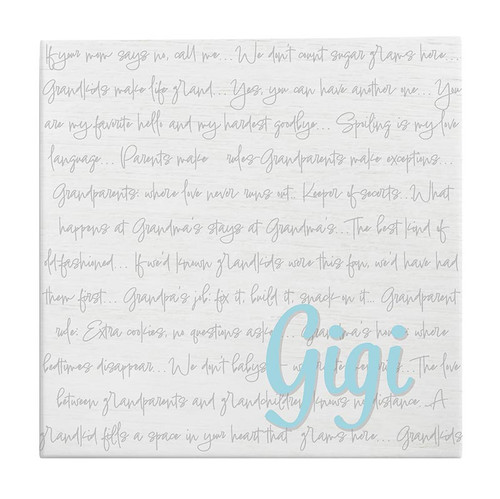 If your mom says no, call me... We don't count sugar grams here...
Grandkids make life grand... Yes, you can have another one... You
are my favorite hello and my hardest goodbye... Spoiling is my love
language... Parents make rules-Grandparents make exceptions...
Grandparents: where love never runs out. Keeper of secorts...What
happens at Grandma's stays at Grandma's...The best kind of
old-fashioned... If we'd known grandkids were this fun, we'd have had
them first... Grandpa's job: fix it, build it, snack on it... Grandparent
rule: Extra cookies, no questions aske Grandma's where
bedtimes disappear... We don't babys The love
between grandparents and grandchildren knows no distance...A
grandkid fills a space in your heart that grams here... Grandkids
Gigi